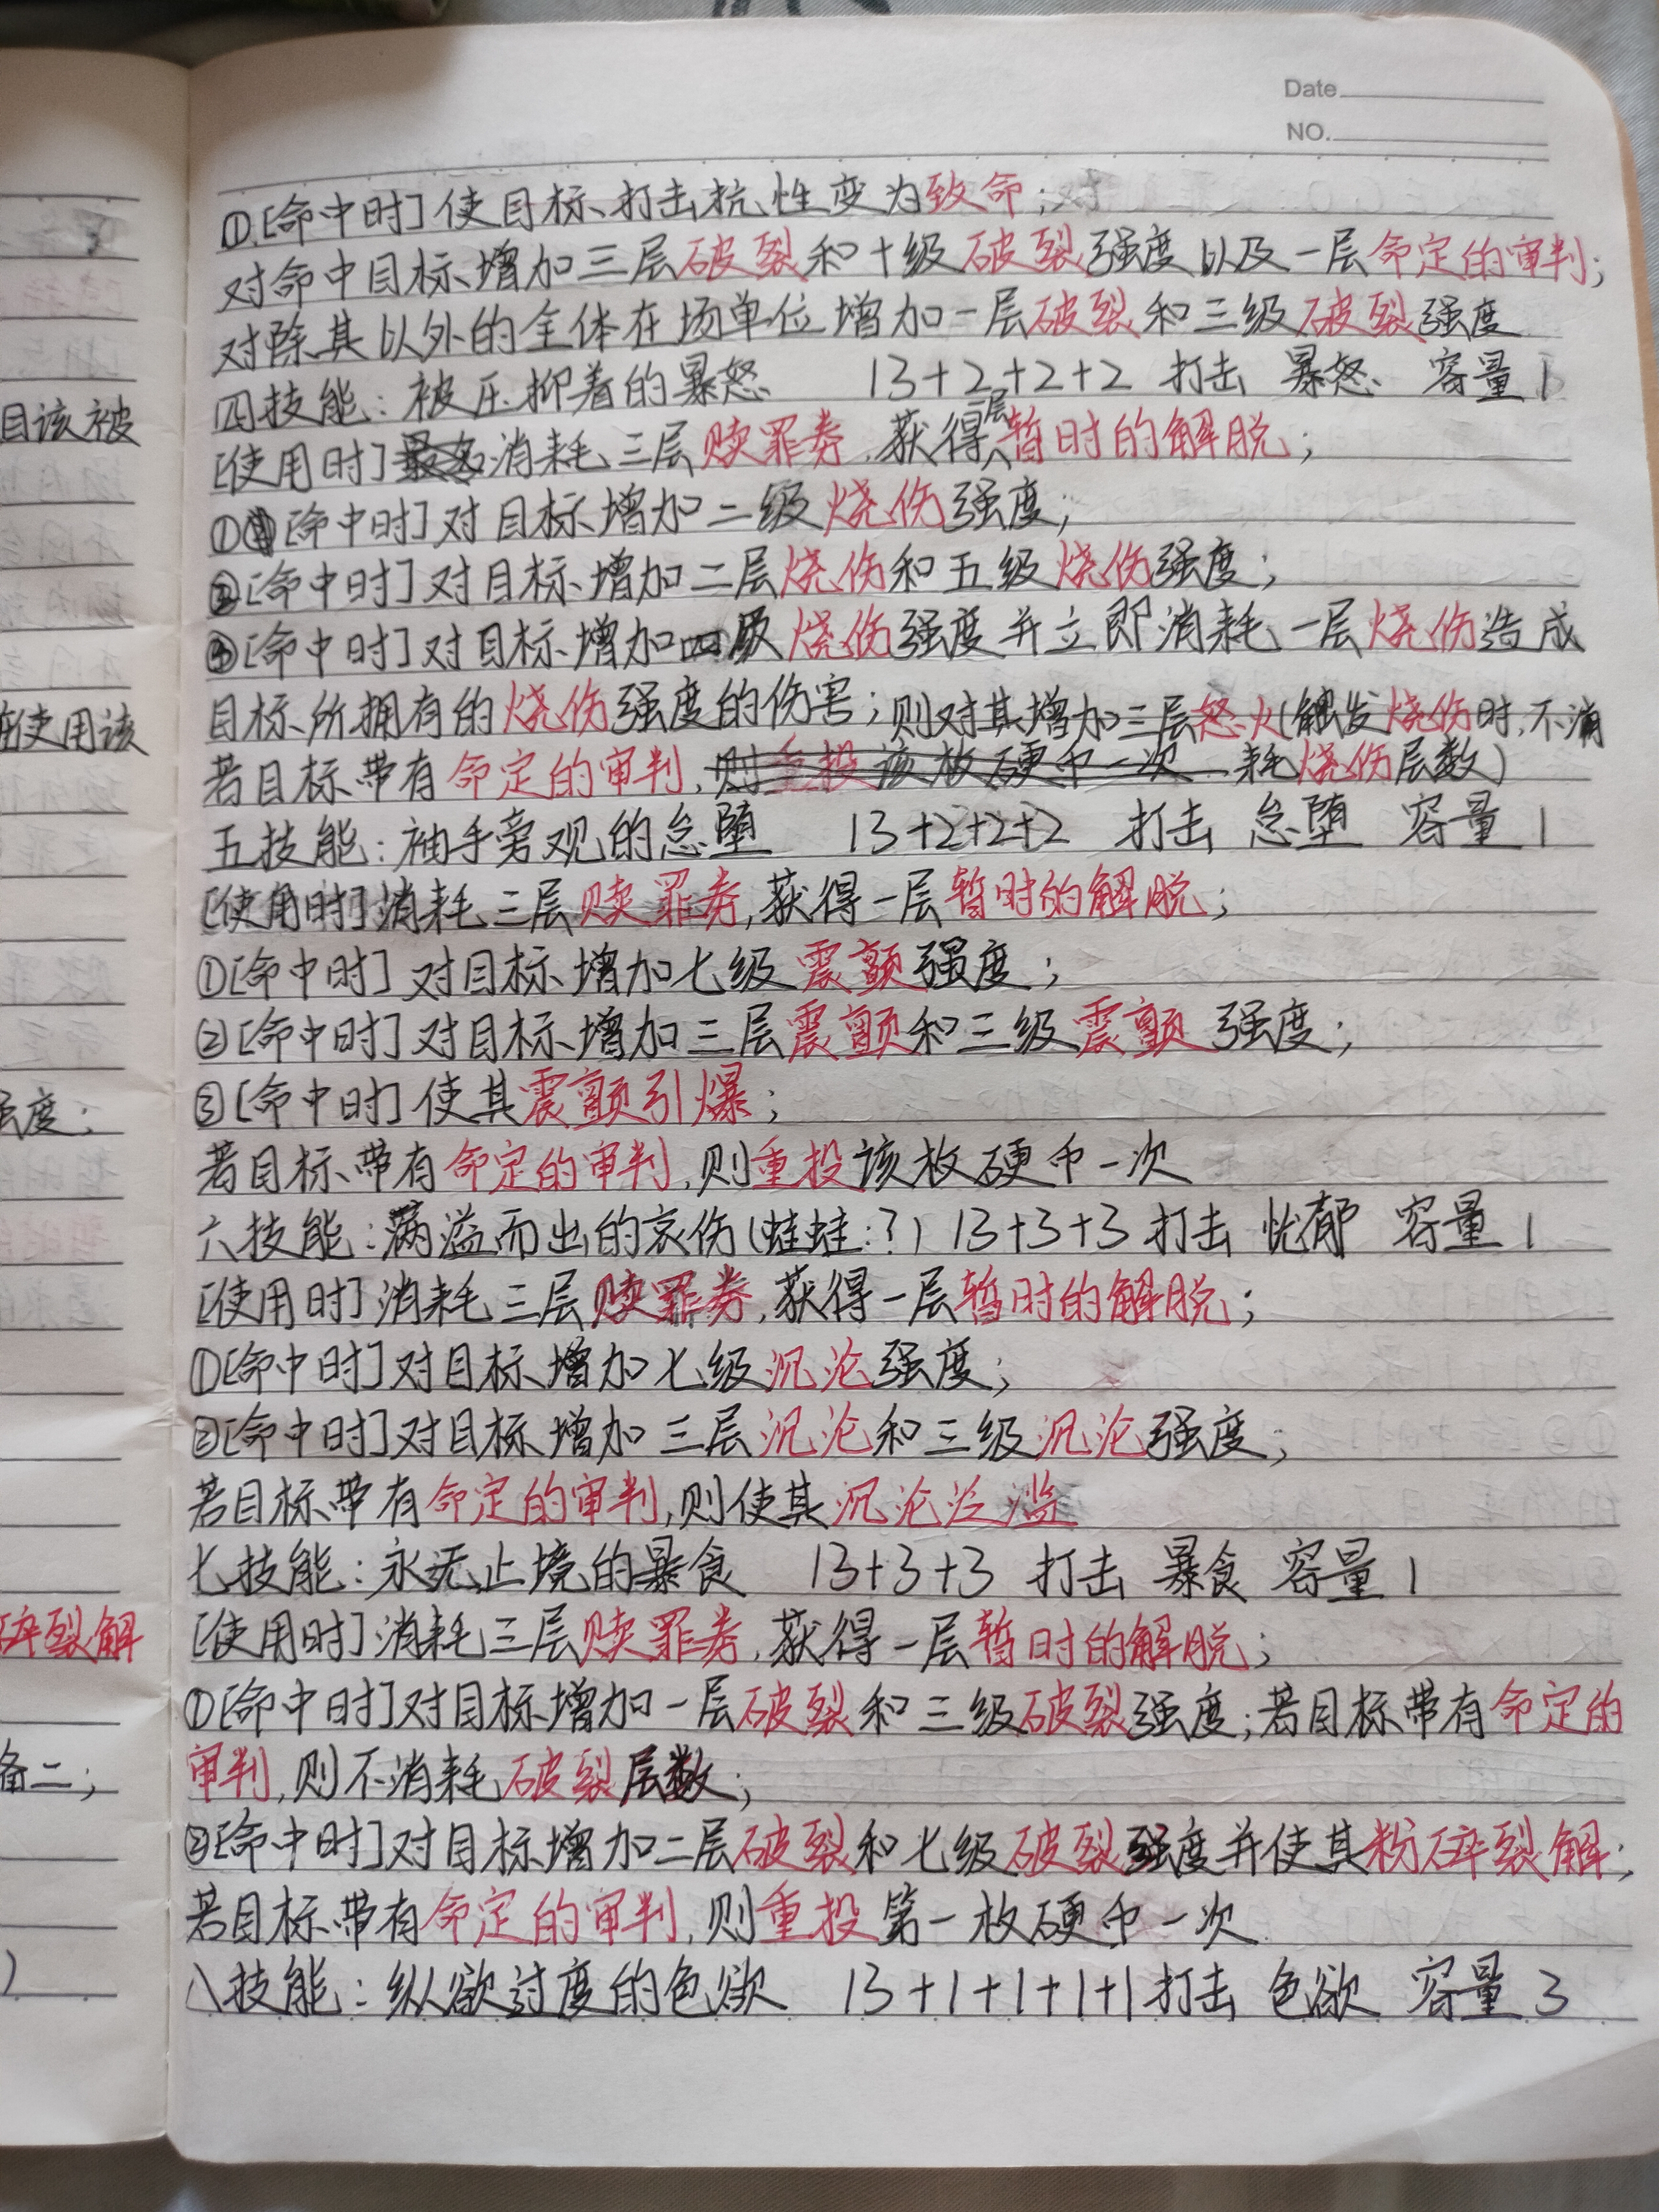 Date
NO.
①[命中时]使目标打击抗性变为致命;对
对命中目标增加三层破裂和十级破裂强度以及一层命定的审判;
对除其以外的全体在场单位增加一层破裂和三级破裂强度
四技能:被压抑着的暴怒 13+2+2+2 打击 暴怒 容量1
[使用时]消耗三层赎罪券,获得一层暂时的解脱;
①[命中时]对目标增加二级烧伤强度;
②[命中时]对目标增加二层烧伤和五级烧伤强度;
③[命中时]对目标增加四级烧伤强度并立即消耗一层烧伤造成
目标所拥有的烧伤强度的伤害;则对其增加三层怒火(触发烧伤时,不消
若目标带有命定的审判,则重投该枚硬币一次 耗烧伤层数)
五技能:袖手旁观的怠堕 13+2+2+2 打击 怠堕 容量1
[使用时]消耗三层赎罪券,获得一层暂时的解脱;
①[命中时]对目标增加七级震颤强度;
②[命中时]对目标增加三层震颤和三级震颤强度;
③[命中时]使其震颤引爆;
若目标带有命定的审判,则重投该枚硬币一次
六技能:满溢而出的哀伤(蛙蛙:?) 13+3+3 打击 忧郁 容量1
[使用时]消耗三层赎罪券,获得一层暂时的解脱;
①[命中时]对目标增加七级沉沦强度;
②[命中时]对目标增加三层沉沦和三级沉沦强度;
若目标带有命定的审判,则使其沉沦泛滥
七技能:永无止境的暴食 13+3+3 打击 暴食 容量1
[使用时]消耗三层赎罪券,获得一层暂时的解脱;
①[命中时]对目标增加一层破裂和三级破裂强度;若目标带有命定的
审判,则不消耗破裂层数;
②[命中时]对目标增加二层破裂和七级破裂强度并使其粉碎裂解;
若目标带有命定的审判,则重投第一枚硬币一次
八技能:纵欲过度的色欲 13+1+1+1+1 打击 色欲 容量3
目该被
在使用该
强度;
碎裂解
备二;
)